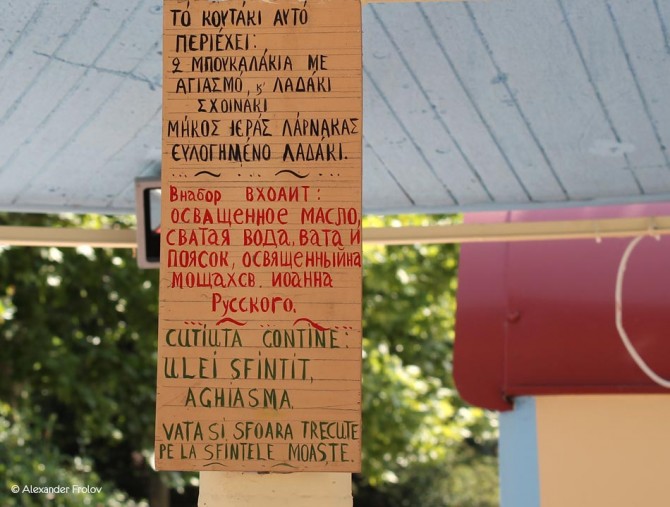 ΤΌ ΚΟΥΤΆΚΙ ΑΥΤΌ
ΠΕΡΙΈΧΕΙ:
2 ΜΠΟΥΚΑΛΆΚΙΑ ΜΕ
ΑΓΙΑΣΜΌ, κ' ΛΑΔΆΚΙ
ΣΧΟΙΝΆΚΙ
ΜΉΚΟΣ ΙΕΡΆΣ ΛΆΡΝΑΚΑΣ
ΕΥΛΟΓΗΜΈΝΟ ΛΑΔΆΚΙ.
Внабор ВХОАИТ:
ОСВАЩЕННОЕ МАСЛО,
СВАТАЯ ВОДА, ВАТА И
ПОЯСОК, ОСВЯЩЕННЫЙНА
МОЩАХСВ. ИОАННА
РУССКОГО.
CUTIUTA CONTINE:
ULEI SFINTIT,
AGHIASMA
VATA SI SFOARA TRECUTE
PE LA SFINTELE MOAȘTE.
© Alexander Frolov